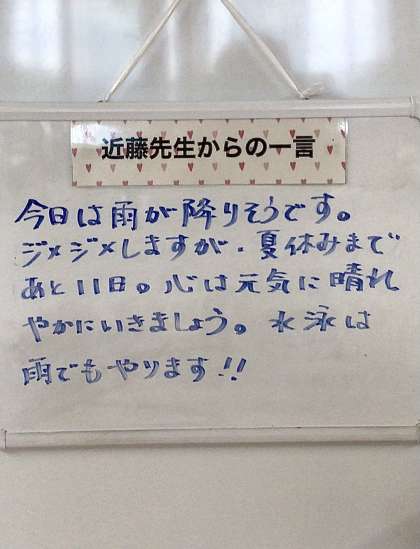 近藤先生からの一言
今日は雨が降りそうです。
ジメジメしますが、夏休みまで
あと11日。心は元気に晴れ
やかにいきましょう。水泳は
雨でもやります!!